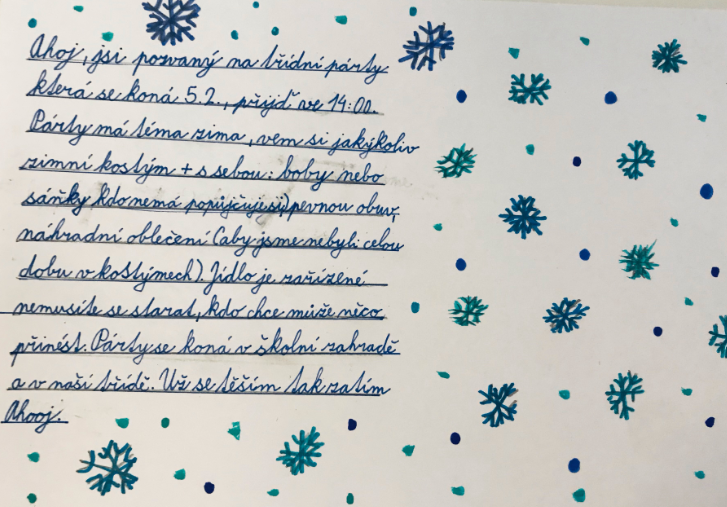 Ahoj, jsi pozvaný na třídní párty
která se koná 5.2., přijď ve 14:00.
Párty má téma zima, vem si jakýkoliv
zimní kostým + s sebou: boby nebo
sáňky kdo nemá popůjčuje si) pevnou obuv,
náhradní oblečení (aby jsme nebyli celou
dobu v kostýmech). Jídlo je zařízené
nemusíte se starat, kdo chce může něco
přinést. Párty se koná v školní zahradě
a v naší třídě. Už se těším tak zatím
Ahooj.